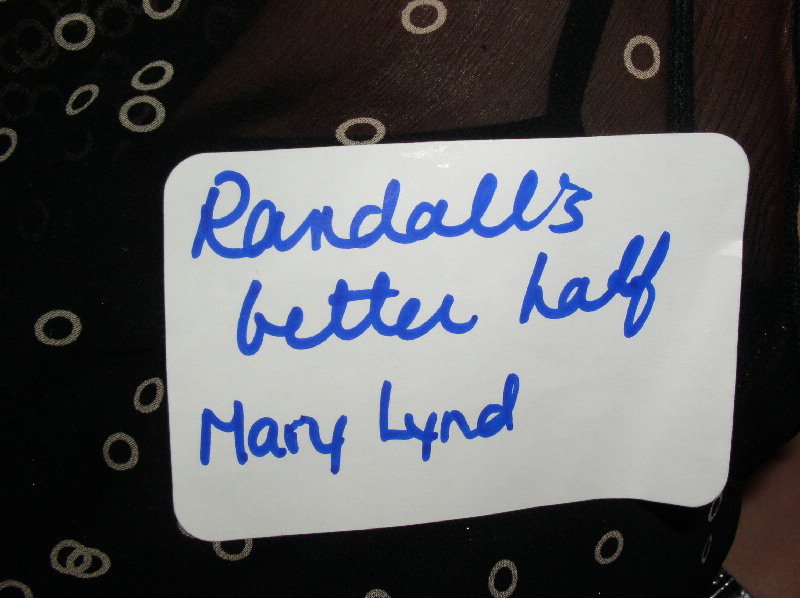 Randall's
better half
Mary Lynd